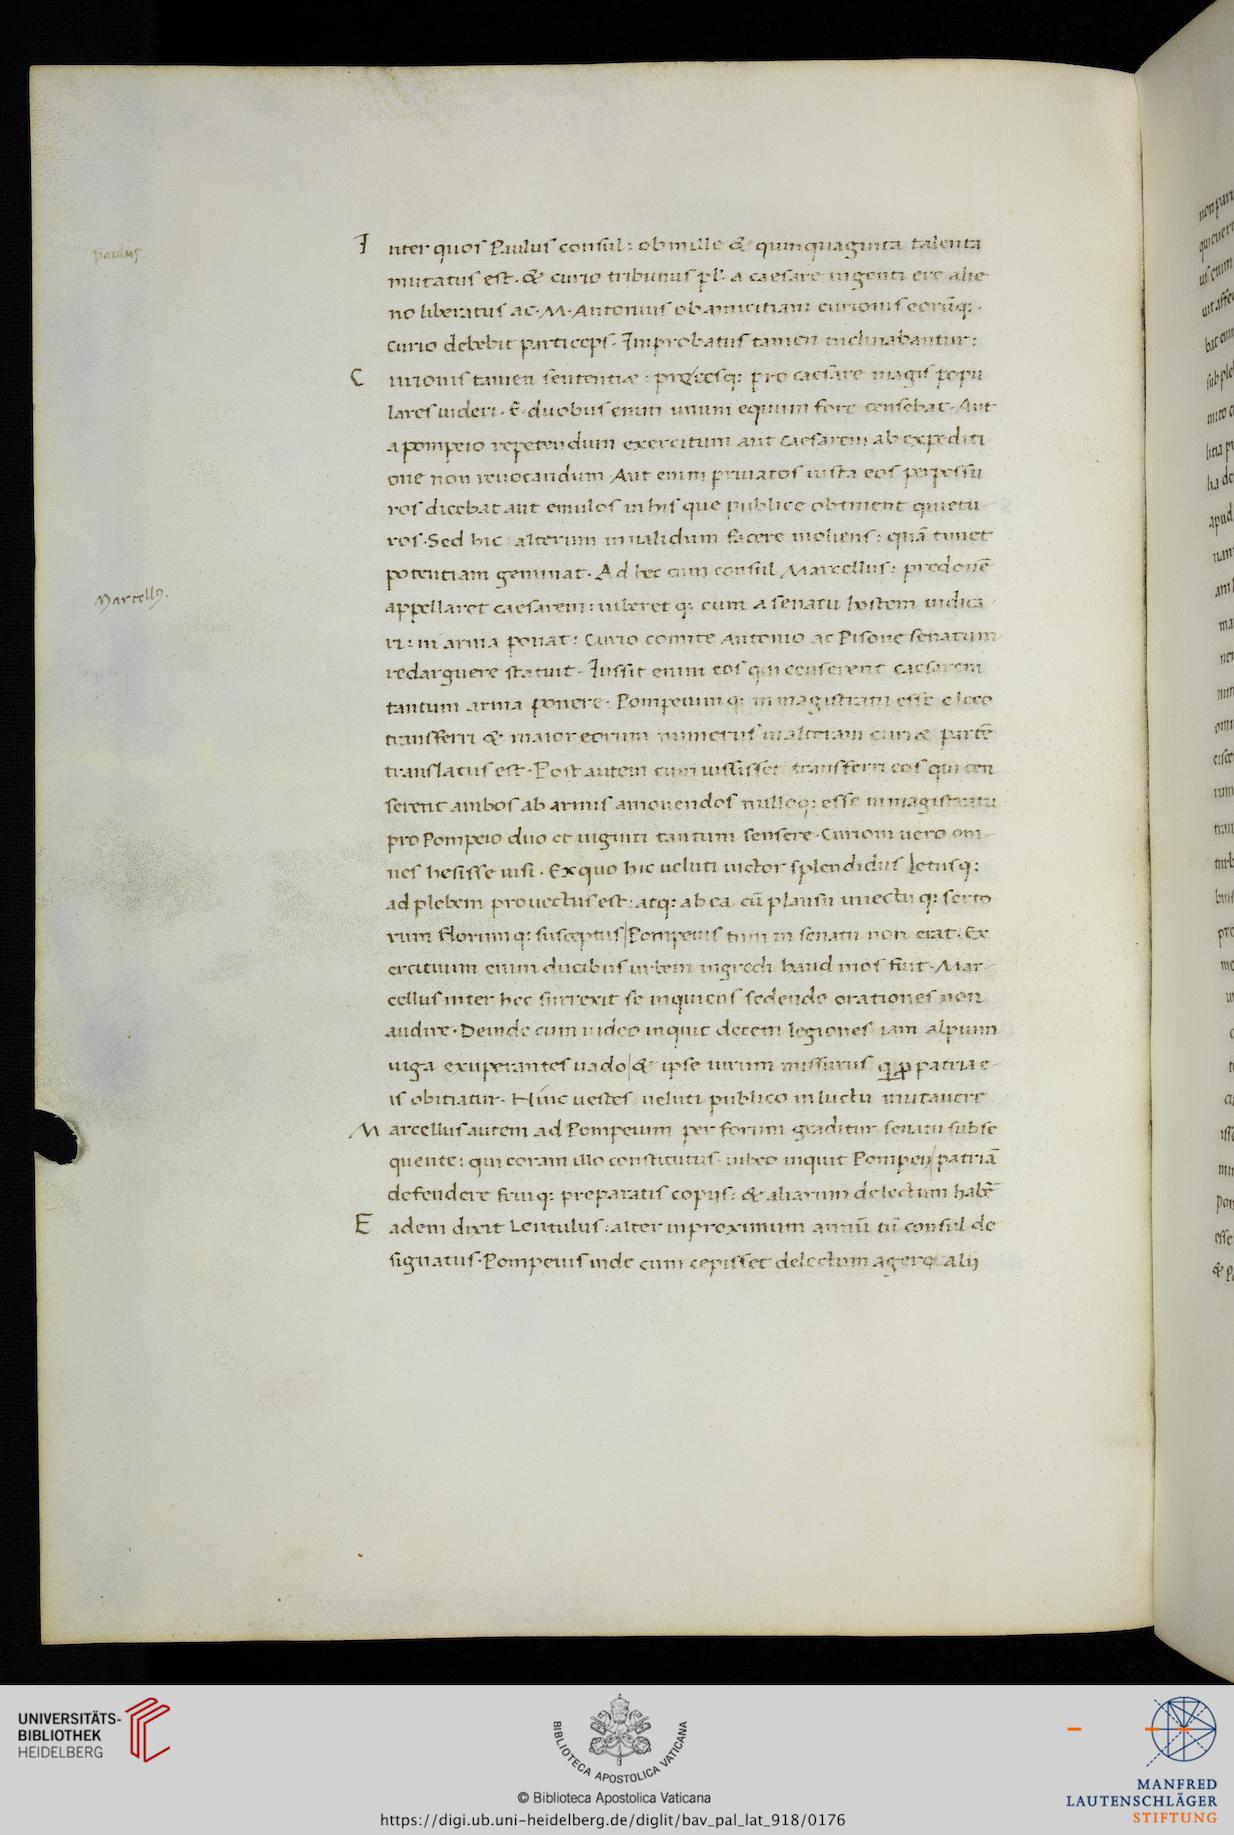 paulus
Inter quos Paulus consul: ob mille & quinquaginta talenta
mutatus est. & curio tribunus pl. a caesare ingenti ere alie
no liberatus ac. M. Antonius ob amicitiam curionis eorūq:
curio debebit particeps. Improbatus tamen inclinabantur:
Curionis tamen sententiæ: pro caesare magis popu
lares uideri. E duobus enim unum equum fore censebat. Aut
a pompeio repetendum exercitum aut caesarem ab expediti
one non reuocandum. Aut enim priuatos iusta eos perpessu
ros dicebat aut emulos in his que publice obtinent quietu
ros. Sed hic alterum inualidum facere moliens: quā timet
potentiam geminat. Ad hec cum consul Marcellus: predonē
Marcellꝰ.
appellaret caesarem: iuberet q: cum a senatu hostem iudica
ri: ni arma ponat: Curio comite Antonio ac Pisone senatum
redarguere statuit. Iussit enim eos qui censerent caesarem
tantum arma ponere: Pompeium q: in magistratu esse e loco
transferri & maior eorum numerus in alteram curiæ partē
translatus est. Post autem cum iussisset transferri eos qui cen
serent ambos ab armis amouendos nulloq: esse in magistratu
pro Pompeio duo et uiginti tantum sensere. Curioni uero om
nes hesisse uisi. Ex quo hic ueluti uictor splendidus letusq:
ad plebem prouectus est: atq: ab ea cū plausu inuectu q: serto
rum florum q: susceptus| Pompeius tum in senatu non erat. Ex
ercituum enim ducibus urbem ingredi haud mos fuit. Mar
cellus inter hec surrexit se inquiens sedendo orationes non
audire. Deinde cum uideo inquit decem legiones iam alpium
iuga exuperantes uado| & ipse uirum missurus patria e
is obitiatur. Hinc uestes ueluti publico in luctu mutauere
Marcellus autem ad Pompeium per forum graditur senatu subse
quente: qui coram illo constitutus. iubeo inquit Pompei| patriā
defendere frui q: preparatis copijs: & aliarum delectum habē
Eadem dixit Lentulus: alter in proximum annū tū consul de
signatus. Pompeius inde cum cepisset delectum agere alij
UNIVERSITÄTS-
BIBLIOTHEK
HEIDELBERG
BIBLIOTECA APOSTOLICA VATICANA
© Biblioteca Apostolica Vaticana
https://digi.ub.uni-heidelberg.de/diglit/bav_pal_lat_918/0176
MANFRED
LAUTENSCHLÄGER
STIFTUNG